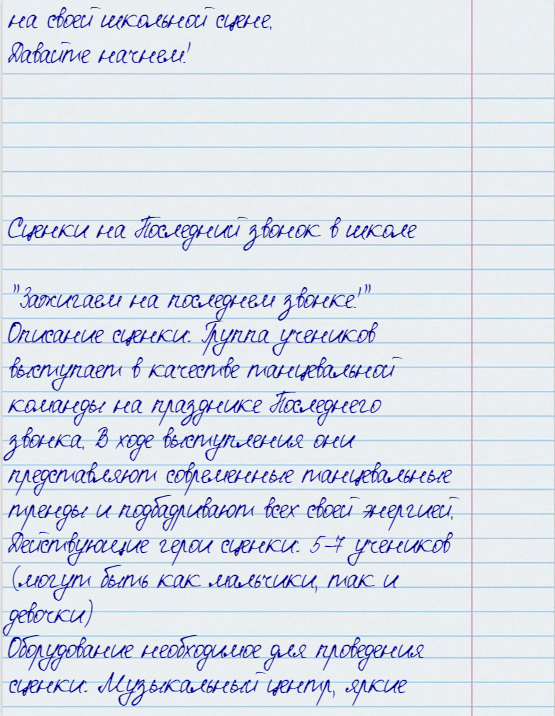 на своей школьной сцене.
Давайте начнем!
Сценки на Последний звонок в школе
"Зажигаем на последнем звонке!"
Описание сценки: Группа учеников
выступает в качестве танцевальной
команды на празднике Последнего
звонка. В ходе выступления они
представляют современные танцевальные
тренды и подбадривают всех своей энергией.
Действующие герои сценки: 5-7 учеников
(могут быть как мальчики, так и
девочки)
Оборудование необходимое для проведения
сценки: Музыкальный центр, яркие